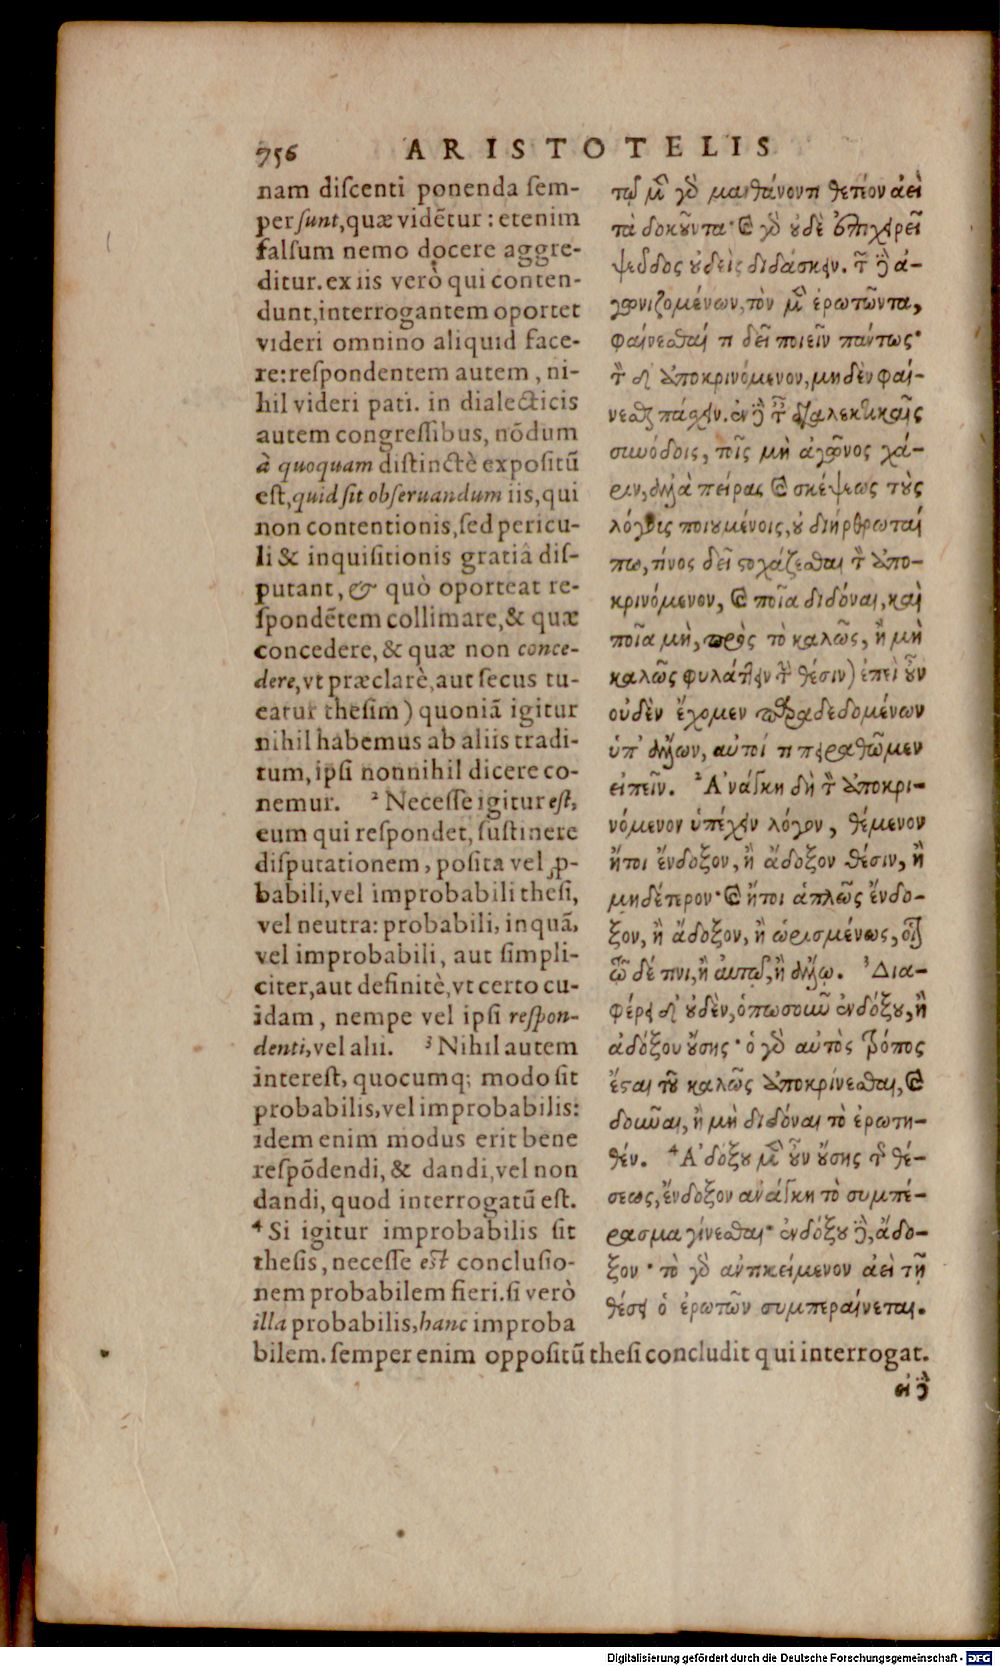 756 ARISTOTELIS
nam diſcenti ponenda ſem-
per ſunt, quæ vidētur : etenim
falſum nemo docere aggre-
ditur. ex iis verò qui conten-
dunt, interrogantem oportet
videri omnino aliquid face-
re: reſpondentem autem, ni-
hil videri pati. in dialecticis
autem congreſſibus, nōdum
à quoquam diſtinctè expoſitū
eſt, quid ſit obſeruandum iis, qui
non contentionis, ſed pericu-
li & inquiſitionis gratiâ diſ-
putant, & quò oporteat re-
ſpondētem collimare, & quæ
concedere, & quæ non conce-
dere, vt præclarè, aut ſecus tu-
eatur theſim) quoniā igitur
nihil habemus ab aliis tradi-
tum, ipſi nonnihil dicere co-
nemur. ² Neceſſe igitur eſt,
eum qui reſpondet, ſuſtinere
diſputationem, poſita vel ꝓ-
babili, vel improbabili theſi,
vel neutra: probabili, inquā,
vel improbabili, aut ſimpli-
citer, aut definitè, vt certo cu-
idam, nempe vel ipſi reſpon-
denti, vel alii. ³ Nihil autem
intereſt, quocumq; modo ſit
probabilis, vel improbabilis:
idem enim modus erit bene
reſpōdendi, & dandi, vel non
dandi, quod interrogatū eſt.
⁴ Si igitur improbabilis ſit
theſis, neceſſe eſt concluſio-
nem probabilem fieri. ſi verò
illa probabilis, hanc improba
bilem. ſemper enim oppoſitū theſi concludit qui interrogat.
τῷ μ γὸ μανθάνοντι θετέον ἀεὶ
τὰ δοκοῦντα· καὶ γὸ οὐδὲ ἐπιχειρεῖ
ψεῦδος οὐδεὶς διδάσκειν. τ δὲ ἀ-
γωνιζομένων, τὸν μ ἐρωτῶντα,
φαίνεσθαί τι δεῖ ποιεῖν πάντως·
τ δ' ἀποκρινόμενον, μηδὲν φαί-
νεσθ πάσχειν. ἐν δὲ τ διαλεκτικαῖς
συνόδοις, τοῖς μὴ ἀγῶνος χά-
ριν, ἀλλὰ πείρας καὶ σκέψεως τοὺς
λόγους ποιουμένοις, οὐ διήρθρωταί
πω, τίνος δεῖ στοχάζεσθαι τ ἀπο-
κρινόμενον, καὶ ποῖα διδόναι, καὶ
ποῖα μὴ, πρὸς τὸ καλῶς, ἢ μὴ
καλῶς φυλάττειν τ θέσιν) ἐπεὶ οὖν
οὐδὲν ἔχομεν παραδεδομένων
ὑπ' ἄλλων, αὐτοί τι πειραθῶμεν
εἰπεῖν. ² Ἀνάγκη δὴ τ ἀποκρι-
νόμενον ὑπέχειν λόγον, θέμενον
ἤτοι ἔνδοξον, ἢ ἄδοξον θέσιν, ἢ
μηδέτερον· καὶ ἤτοι ἁπλῶς ἔνδο-
ξον, ἢ ἄδοξον, ἢ ὡρισμένως, οἷον
τῷδέ τινι, ἢ αὐτῷ, ἢ ἄλλῳ. ³ Δια-
φέρει δ' οὐδὲν, ὁπωσοῦν ἐνδόξου, ἢ
ἀδόξου οὔσης· ὁ γὸ αὐτὸς τρόπος
ἔσται τοῦ καλῶς ἀποκρίνεσθαι, καὶ
δοῦναι, ἢ μὴ διδόναι τὸ ἐρωτη-
θέν. ⁴ Ἀδόξου μ οὖν οὔσης τ θέ-
σεως, ἔνδοξον ἀνάγκη τὸ συμπέ-
ρασμα γίνεσθαι· ἐνδόξου δὲ, ἄδο-
ξον· τὸ γὸ ἀντικείμενον ἀεὶ τῇ
θέσει ὁ ἐρωτῶν συμπεραίνεται.
εἰ δὲ
Digitalisierung gefördert durch die Deutsche Forschungsgemeinschaft - DFG